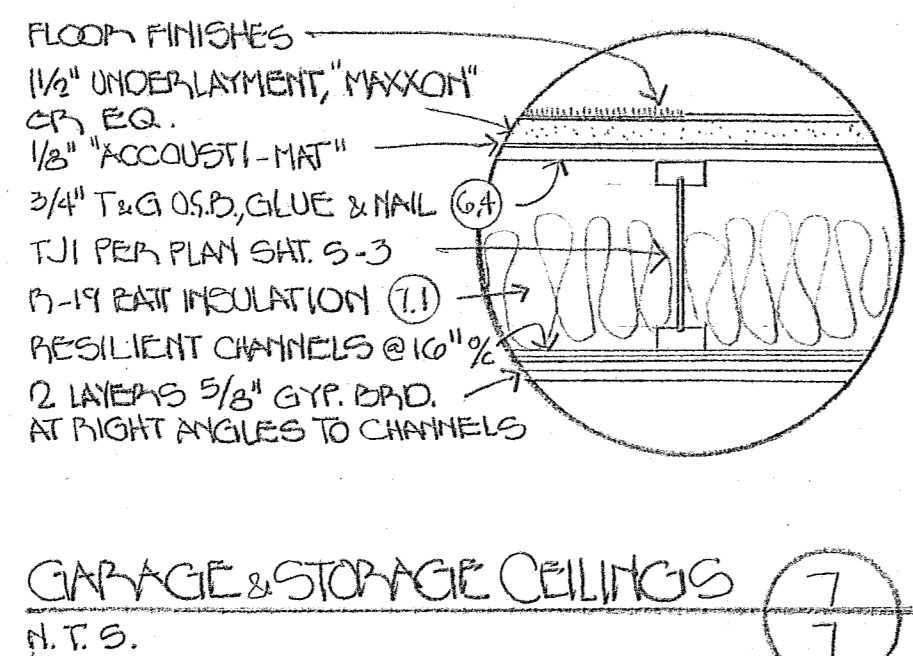 FLOOR FINISHES
1 1/2" UNDERLAYMENT, "MAXXON"
OR EQ.
1/8" "ACCOUSTI-MAT"
3/4" T&G O.S.B., GLUE & NAIL 6.4
TJI PER PLAN SHT. S-3
R-19 BATT INSULATION 7.1
RESILIENT CHANNELS @ 16" O/C
2 LAYERS 5/8" GYP. BRD.
AT RIGHT ANGLES TO CHANNELS
GARAGE & STORAGE CEILINGS 7
N.T.S. 7